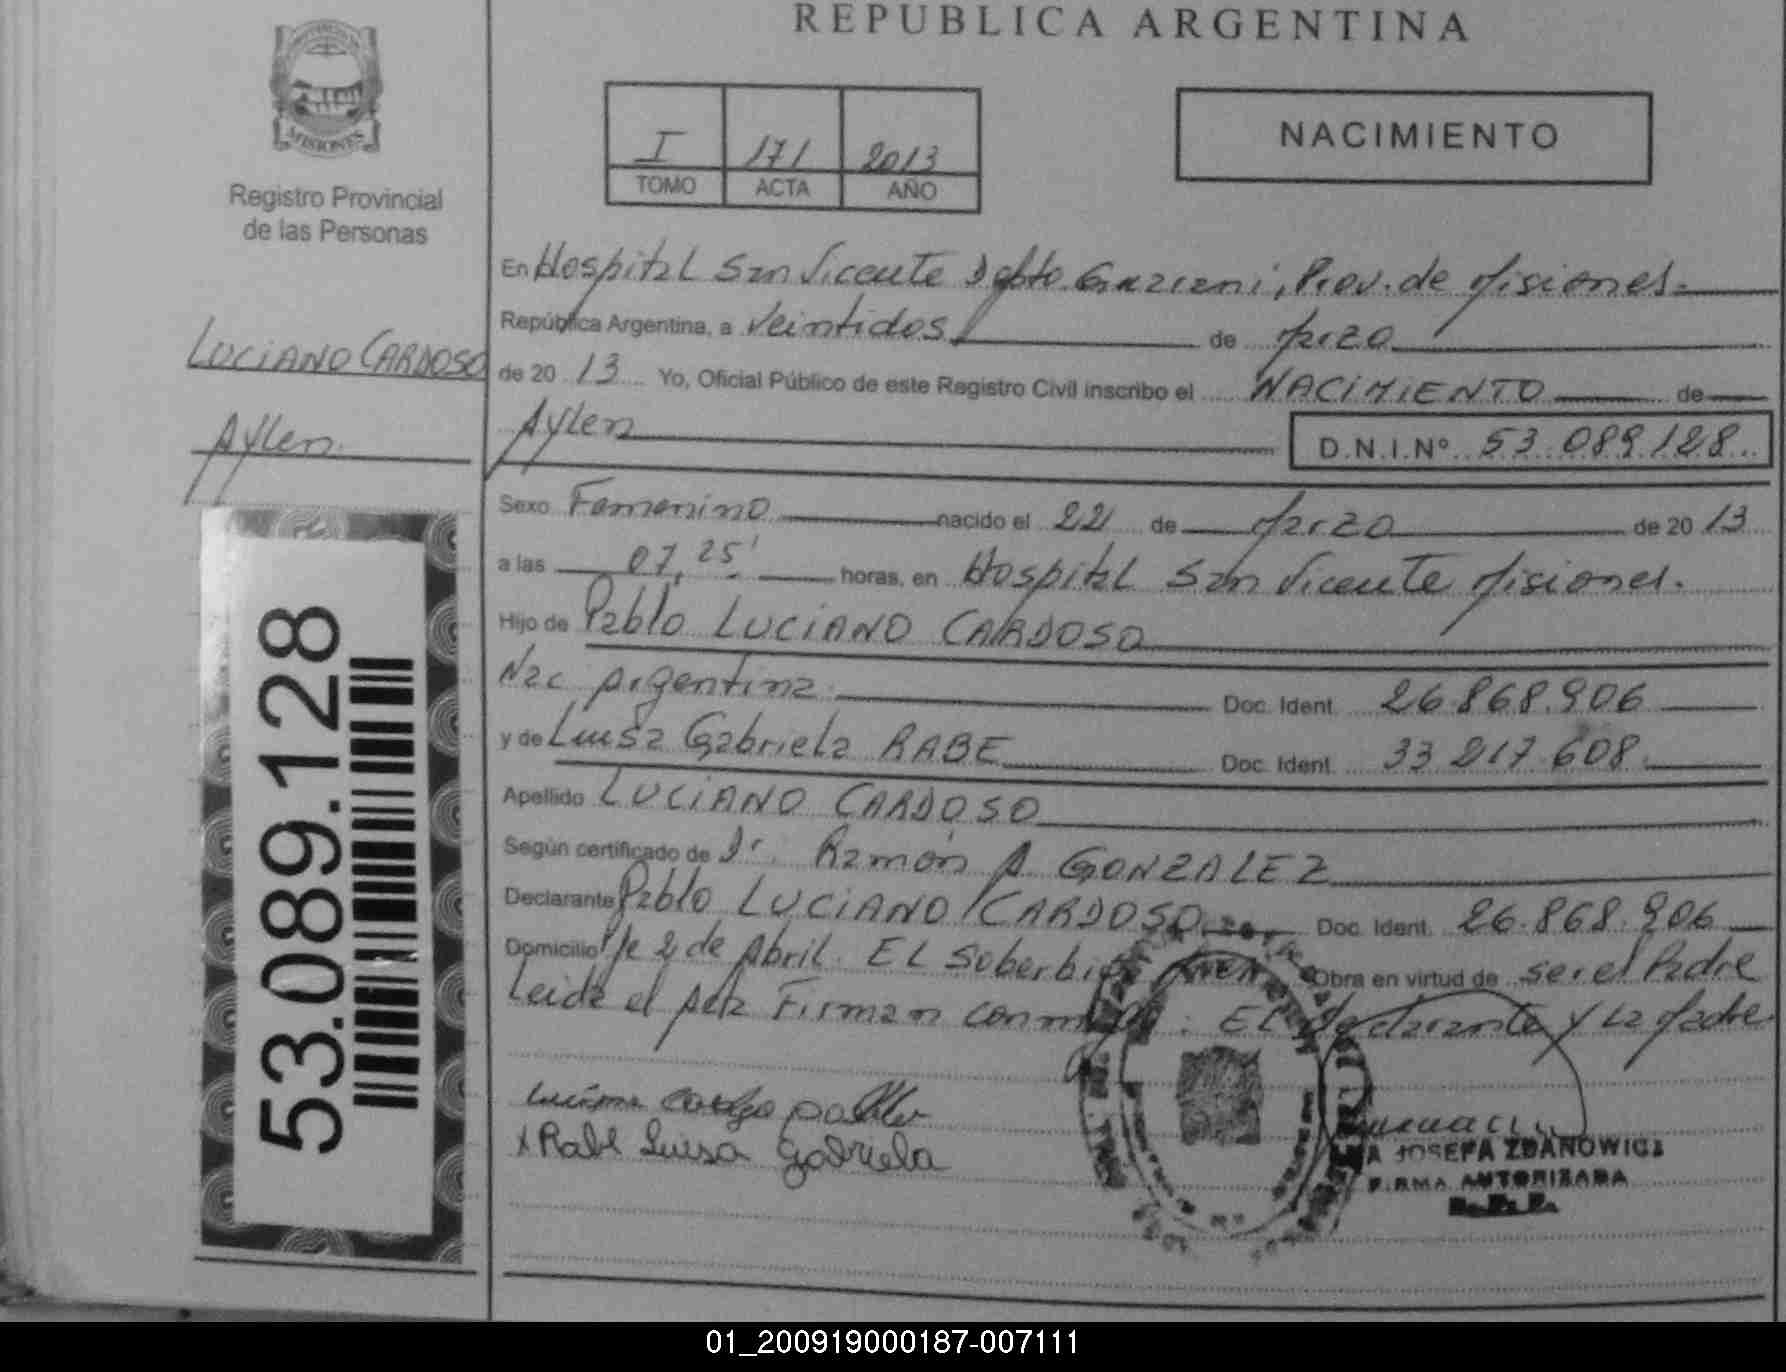 REPUBLICA ARGENTINA
MISIONES
Registro Provincial
de las Personas
I 171 2013
TOMO ACTA AÑO
NACIMIENTO
LUCIANO CARDOSO
Aylen.
53.089.128
En Hospital San Vicente Dpto. Guarani, Prov. de Misiones.
República Argentina, a Veintidos de Marzo
de 20 13 Yo, Oficial Público de este Registro Civil inscribo el NACIMIENTO de
Aylen D.N.I.Nº 53.089.128
Sexo Femenino nacido el 22 de Marzo de 20 13
a las 07,25' horas, en Hospital San Vicente Misiones.
Hijo de Pablo LUCIANO CARDOSO
Nac Argentina. Doc. Ident. 26.868.906
y de Luisa Gabriela RABE Doc. Ident. 33.217.608.
Apellido LUCIANO CARDOSO
Según certificado de Dr. Ramón A GONZALEZ
Declarante Pablo LUCIANO CARDOSO Doc. Ident. 26.868.906
Domicilio 2 de Abril. EL Soberbio Obra en virtud de ser el Padre
Leida el Acta Firman conmigo: EL declarante y La Madre
x Rabe Luisa Gabriela
JOSEFA ZDANOWICZ
FIRMA AUTORIZADA
01_200919000187-007111